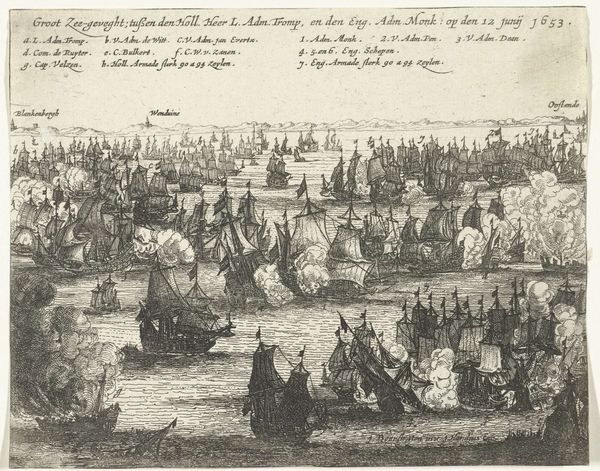 Groot Zee-geveght; tußen den Holl. Heer L. Adm. Tromp, en den Eng. Adm. Monk: op den 12 junij 1653.
a. L. Adm. Tromp. b. V. Adm. de Witt. C. V. Adm. jan Everts. 1. Adm. Monk. 2. V. Adm. Pen. 3. V. Adm. Dean.
d. Com. de Ruyter. e. C. Balkert. f. C. W. v. Zanen. 4. 5. en 6. Eng. Schepen.
g. Cap. Velzen. h. Holl. Armade sterk 90 a 94 zeylen. 7. Eng. Armade sterk 90 a 94 zeylen.
Blankenbergh Wenduine Oostende